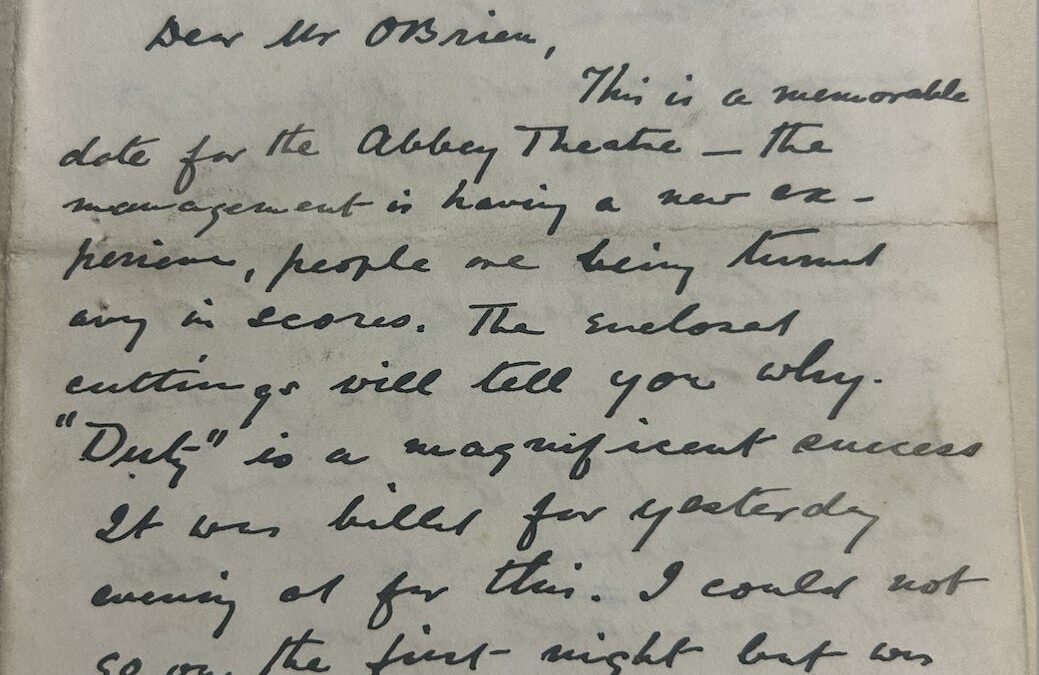 Dear Mr OBrien,
This is a memorable
date for the Abbey Theatre — the
management is having a new ex-
perience, people are being turned
away in scores. The enclosed
cuttings will tell you why.
"Duty" is a magnificent success
It was billed for yesterday
evening & for this. I could not
go on the first night but was